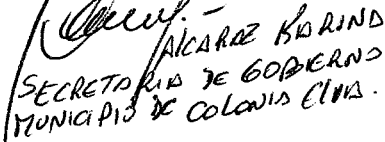 ALCARAZ KARINA
SECRETARIA DE GOBIERNO
MUNICIPIO DE COLONIA ELIA.